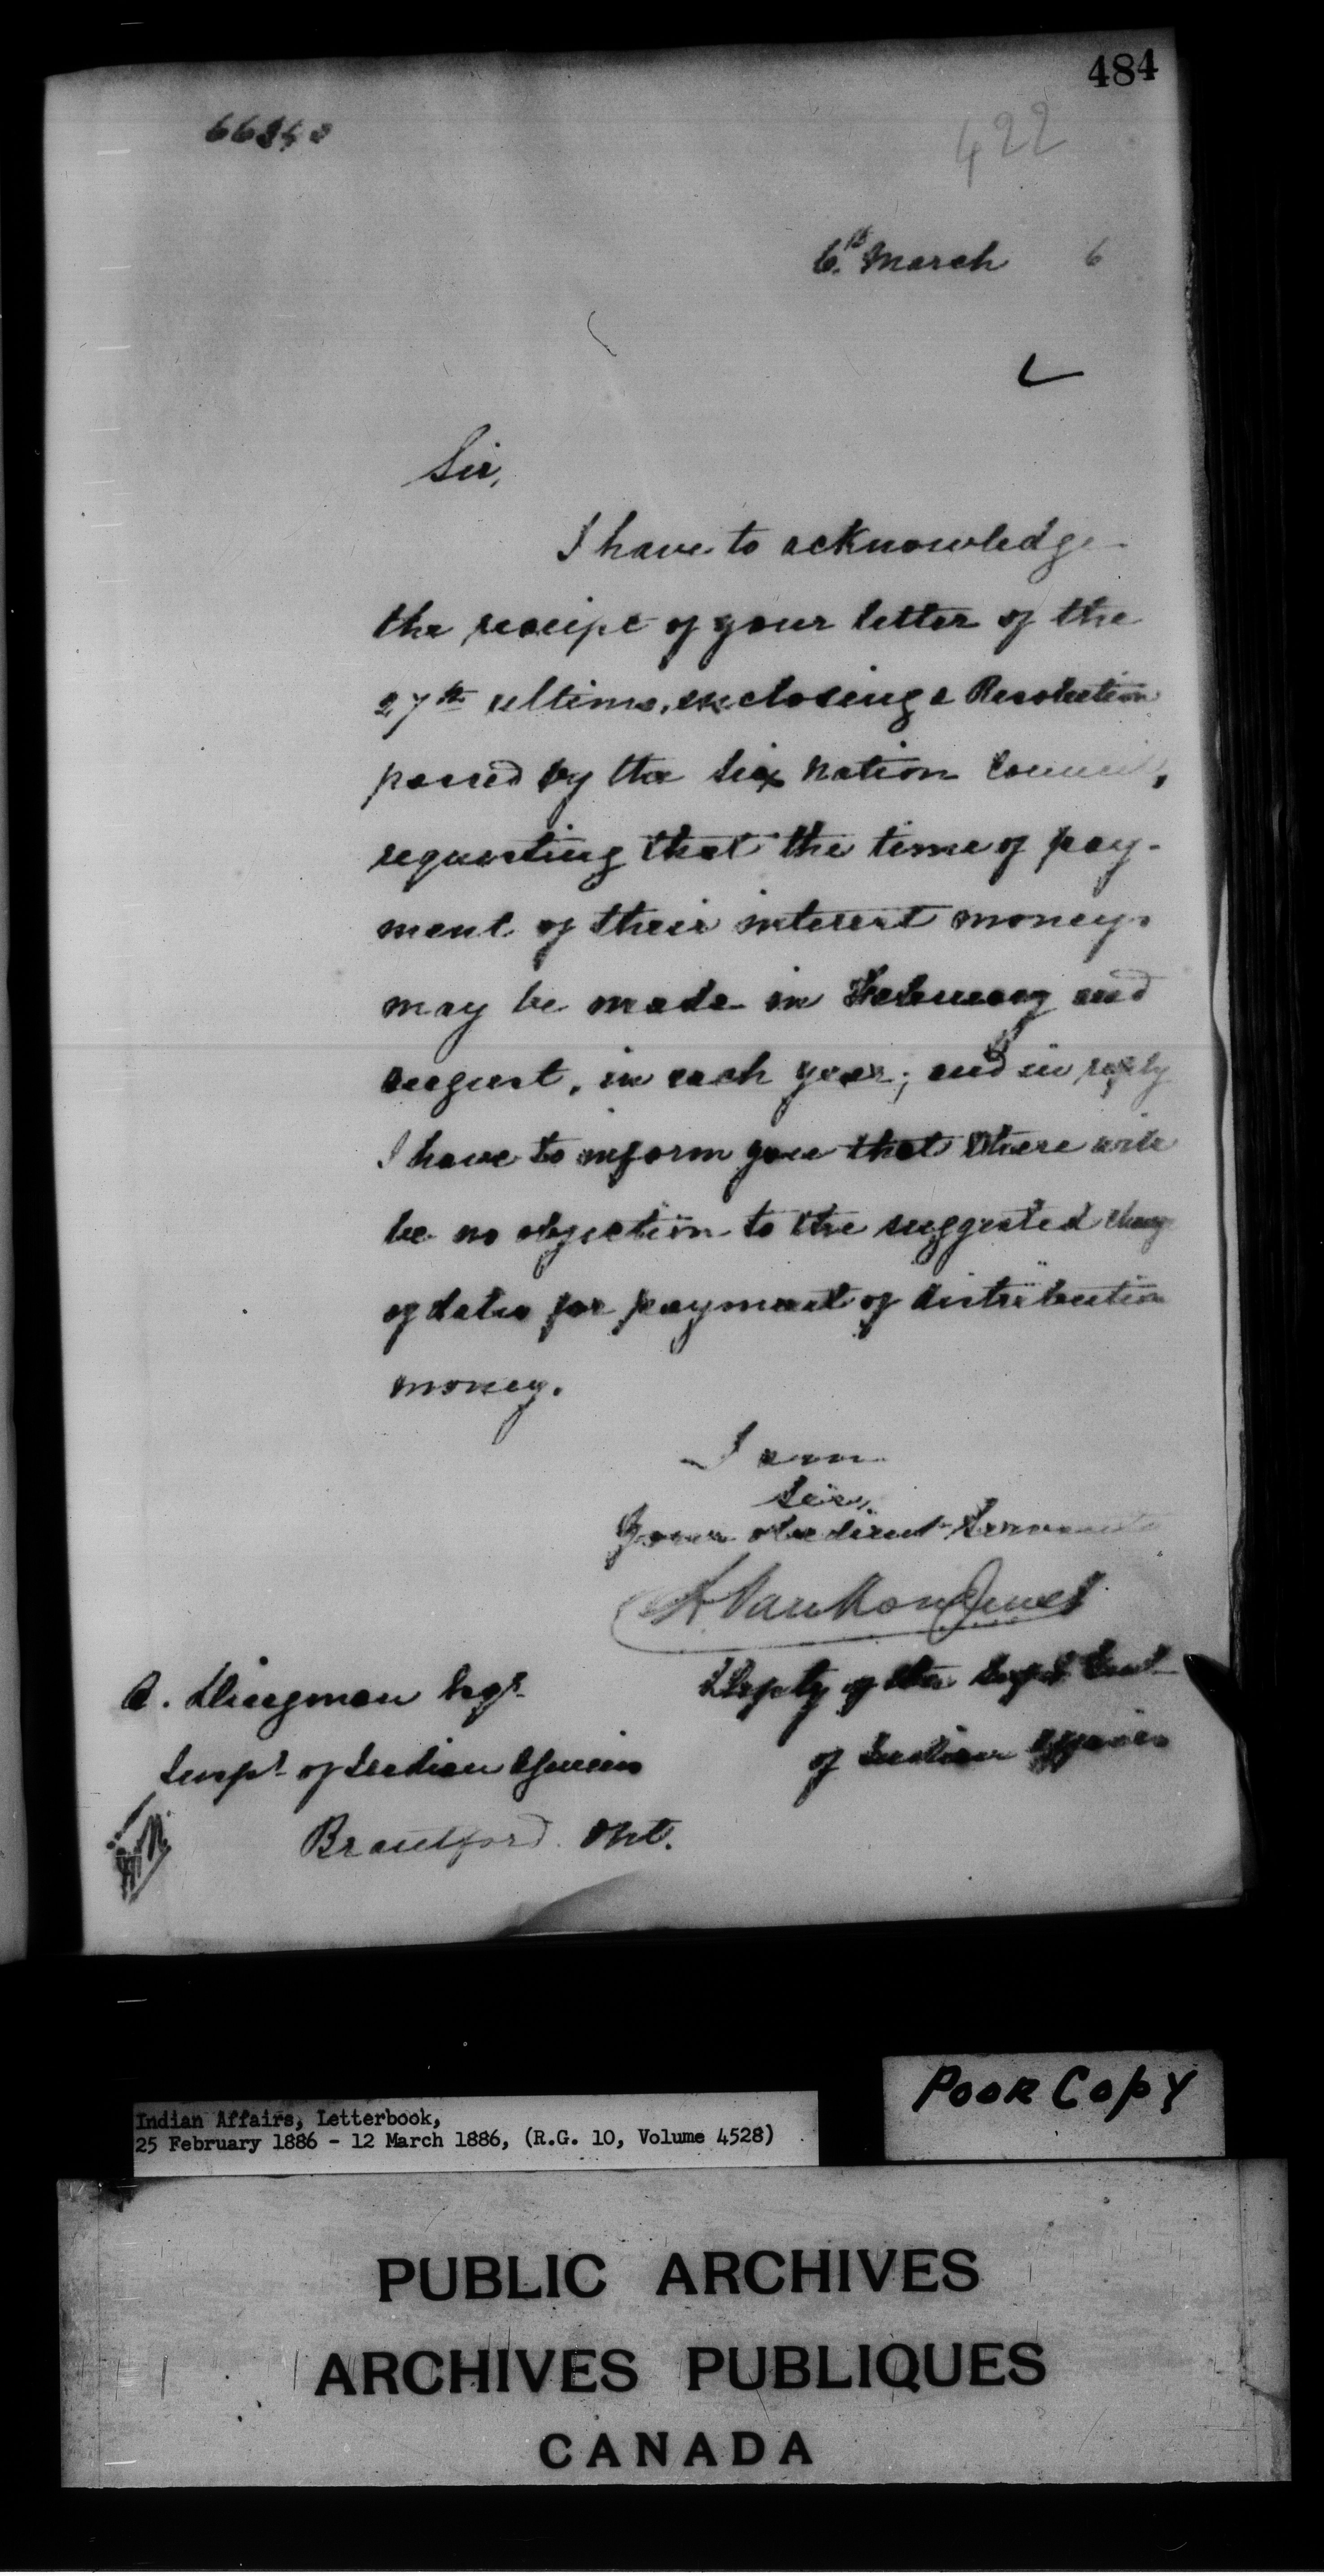 484
422
6th March 6
Sir,
I have to acknowledge
the receipt of your letter of the
27th ultimo, enclosing a Resolution
passed by the Six Nation Council,
requesting that the time of pay-
ment of their interest moneys
may be made in February and
August, in each year; and in reply
I have to inform you that there will
be no objection to the suggested change
of dates for payment of distribution
money.
I am
Sir,
Your obedient Servant
L VanKoughnet
Deputy of the Supt Genl
of Indian Affairs
A. Dingman Esqr
Supt of Indian Affairs
Brantford Ont.
POOR COPY
Indian Affairs, Letterbook,
25 February 1886 - 12 March 1886, (R.G. 10, Volume 4528)
PUBLIC ARCHIVES
ARCHIVES PUBLIQUES
CANADA